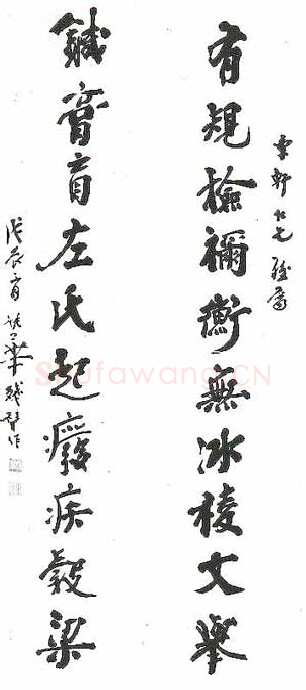 軒仁兄雅屬
有規檢禰衡無冰棱文舉
鍼膏肓左氏起癈疾穀梁
戊辰姚華殘臂作
Shufawang.CN